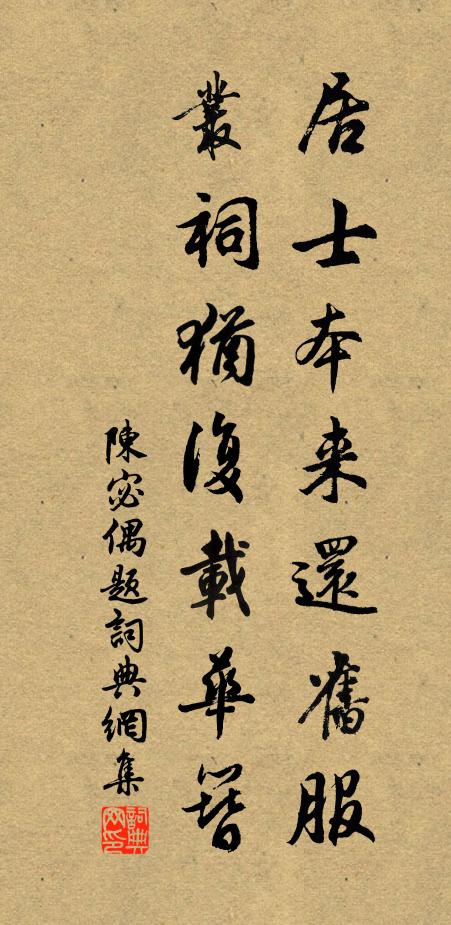 居士本来還舊服
叢祠猶復載華簪
陳宓偶題詞典網集
詞典网印